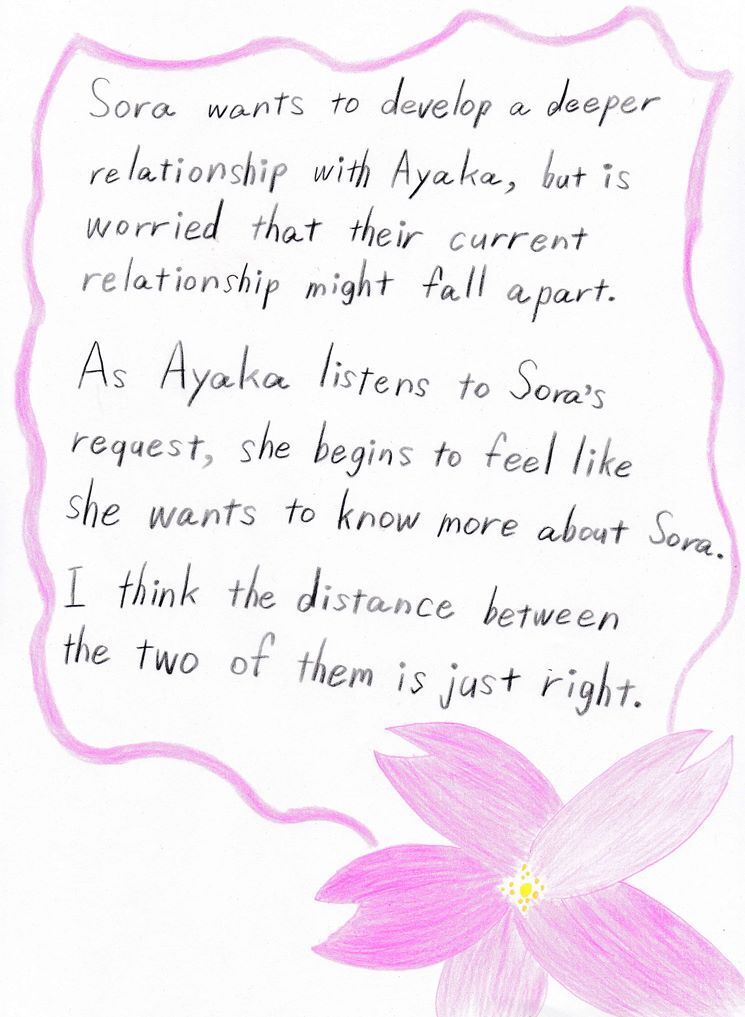 Sora wants to develop a deeper
relationship with Ayaka, but is
worried that their current
relationship might fall apart.
As Ayaka listens to Sora's
request, she begins to feel like
she wants to know more about Sora.
I think the distance between
the two of them is just right.